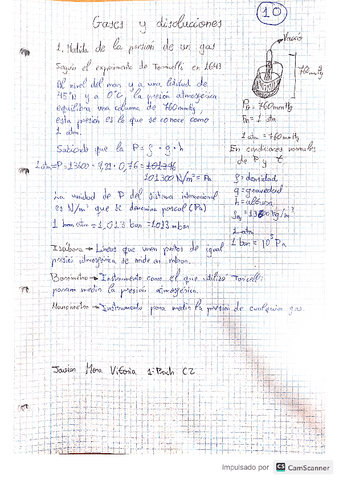 Gases y disoluciones
10
1. Medida de la presion de un gas
Vacío
Según el experimento de Torricelli en 1643
760 mmHg
Al nivel del mar y a una latitud de
45°N y a 0°C la presión atmosférica
equilibra una columna de 760 mmHg
esta presion es lo que se conoce como
1 atm.
P₀ = 760 mmHg
P₀ = 1 atm
1 atm = 760 mmHg
En condiciones normales
de P y t
Sabiendo que la P = ρ · g · h
1 atm = P = 13600 · 9,81 · 0,76 =
101300 N/m² = Pa
ρ = densidad
g = gravedad
h = altura
ρHg = 13600 kg/m³
La unidad de P del sistema internacional
es N/m² que se denomina pascal (Pa)
1 atm = 1,013 bar = 1013 mbar
1 atm
1 bar = 10⁵ Pa
Isobara → Lineas que unen puntos de igual
presión atmosférica se mide en mbar.
Barometro → Instrumento como el que utilizó Torricelli
para medir la presión atmosférica.
Manometro → Instrumento para medir la presión de cualquier gas.
Javier Mora Vitoria 1º Bach C2
Impulsado por CS CamScanner